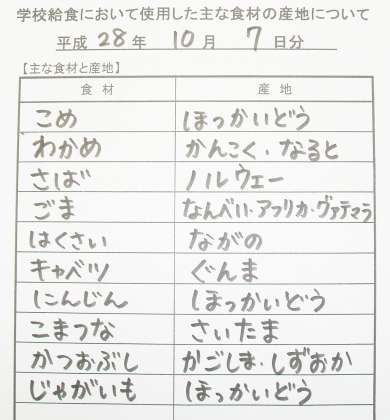 学校給食において使用した主な食材の産地について
平成28年 10月 7日分
【主な食材と産地】
食材 産地
こめ ほっかいどう
わかめ かんこく・なると
さば ノルウェー
ごま なんべい・アフリカ・グァテマラ
はくさい ながの
キャベツ ぐんま
にんじん ほっかいどう
こまつな さいたま
かつおぶし かごしま・しずおか
じゃがいも ほっかいどう